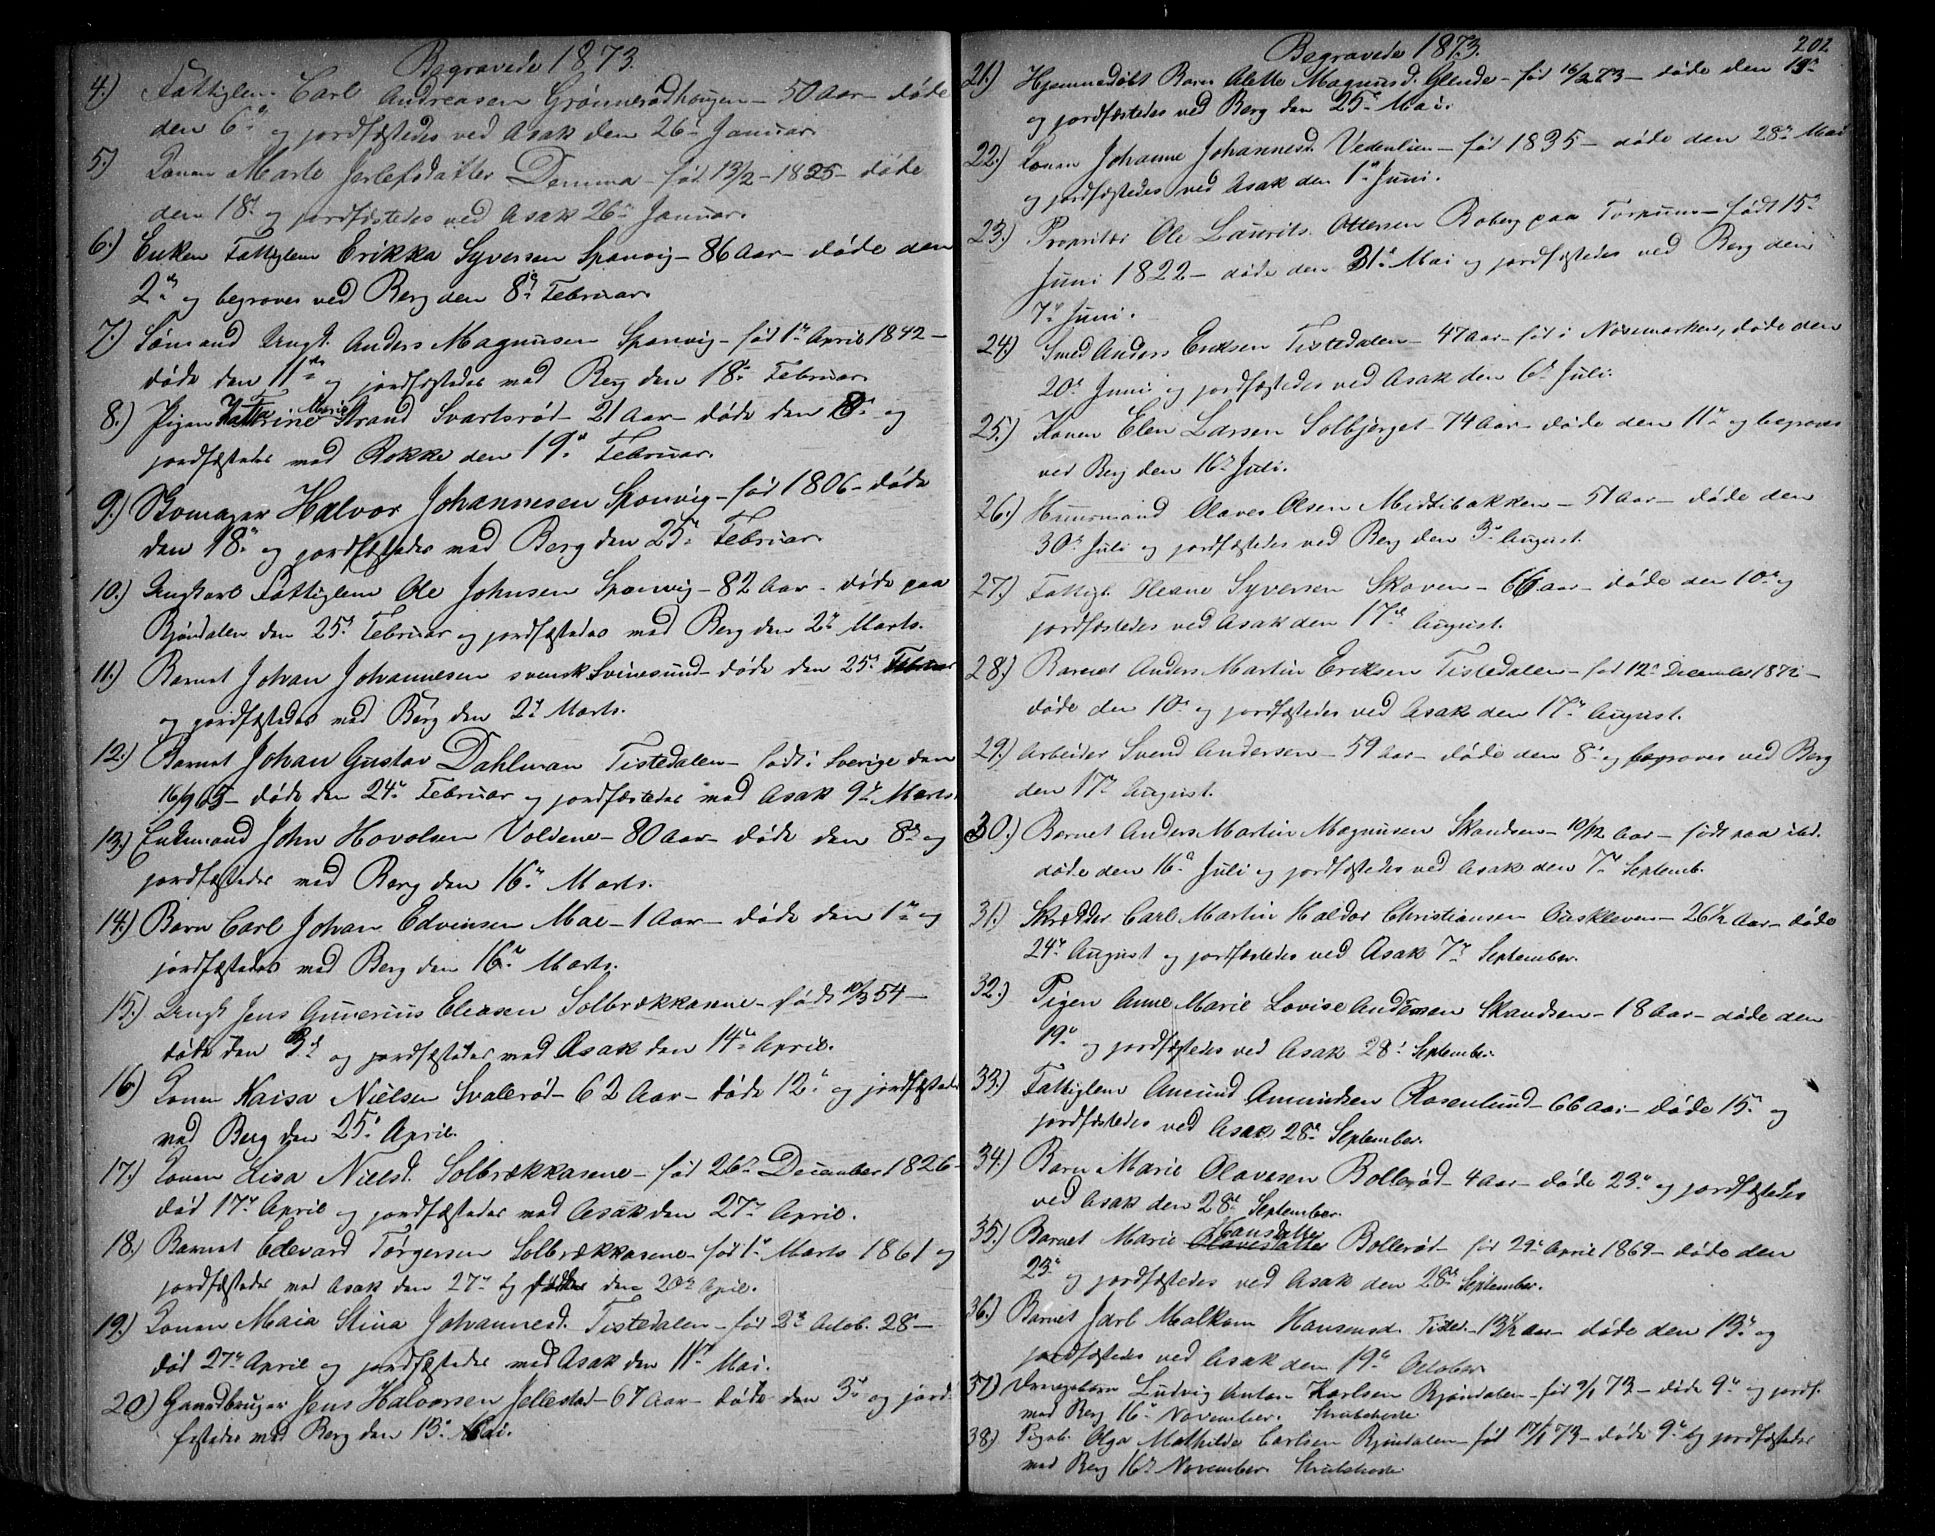 Begravede 1873.
4.) Fattiglem Carl Andreasen Grønnerødhougen – 50 Aar – døde
den 6te og jordfæstedes ved Asak den 26de Januar.
5.) Konen Marte Jerlefsdatter Demma – fød 13/2 – 1825 – døde
den 18de og jordfæstedes ved Asak 26de Januar.
6.) Enken Fattiglem Erikka Syversen Sponvig – 86 Aar – døde den
2den og begroves ved Berg den 8de Februar.
7.) Sømand Ungk. Anders Magnusen Sponvig – fød 1ste April 1842 –
døde den 11te og jordfæstedes ved Berg den 18de Februar.
8.) Pigen Kattrine Marie Strand Svartsrød – 21 Aar – døde den 8de og
jordfæstedes ved Rokke den 19de Februar.
9.) Skomager Halvor Johannesen Sponvig – fød 1806 – døde
den 18de og jordfæstedes ved Berg den 25de Februar.
10.) Ungkarl Fattiglem Ole Johnsen Sponvig – 82 Aar – døde paa
Bjøndalen den 25de Februar og jordfæstedes ved Berg den 2den Marts.
11.) Barnet Johan Johannesen svensk Svinesund – døde den 25de Februar
og jordfæstedes ved Berg den 2den Marts.
12.) Barnet Johan Gustav Dahlman Tistedalen – født i Sverige den
døde den 24de Februar og jordfæstedes ved Asak 9de Marts.
13.) Enkemand John Hovolsen Voldene – 80 Aar – døde den 8de og
jordfæstedes ved Berg den 16de Marts.
14.) Barn Carl Johan Edvinsen Mae – 1 Aar – døde den 1ste og
jordfæstedes ved Berg den 16de Marts.
15.) Ungk. Jens Gunerius Eliasen Solbrækkasene – født 10/3 54 –
døde den 3de og jordfæstedes ved Asak den 14de April.
16.) Konen Kaisa Nielsen Svalerød – 62 Aar – døde 12te og jordfæstedes
ved Berg den 25de April.
17.) Konen Lisa Nielsd. Solbrækkasene – fød 26de December 1826 –
død 17de April og jordfæstedes ved Asak den 27de April.
18.) Barnet Edevard Torgersen Solbrækkasene – fød 1ste Marts 1861 og
jordfæstedes ved Asak den 27de og døde den 20de April.
19.) Konen Maia Stina Johannesd. Tistedalen – fød 2den Octob. 28 –
død 27de April og jordfæstedes ved Asak den 11te Mai.
20.) Gaardbruger Jens Halvorsen Jellestad – 67 Aar – døde den 3de og jord-
fæstedes ved Berg den 13de Mai.
Begravede 1873. 202
21.) Hjemmedøbt Barn Alette Magnusd. Glende – fød 16/2 73 – døde den 19de
og jordfæstedes ved Berg den 25de Mai.
22.) Konen Johanne Johannesd. Vedenlien – fød 1835 – døde den 28de Mai
og jordfæstedes ved Asak den 1ste Juni.
23.) Propritær Ole Laurits Ottersen Boberg paa Torpum – født 15de
Juni 1822 – døde den 31te Mai og jordfæstedes ved Berg den
7de Juni.
24.) Smed Anders Eriksen Tistedalen – 47 Aar – fød i Nøsemarken, døde den
20de Juni og jordfæstedes ved Asak den 6te Juli.
25.) Konen Elen Larsen Solbjerget – 74 Aar – døde den 11te og begroves
ved Berg den 16de Juli.
26.) Huusmand Olaves Olsen Midtibakken – 51 Aar – døde den
30te Juli og jordfæstedes ved Berg den 3de August.
27.) Fattigl. Syversen Skoven – 66 Aar – døde den 10de og
jordfæstedes ved Asak den 17de August.
28.) Barnet Anders Martin Eriksen Tistedalen – fød 12te December 1872 –
døde den 10de og jordfæstedes ved Asak den 17de August.
29.) Arbeider Svend Andersen – 59 Aar – døde den 8de og begroves ved Berg
den 17de August.
30.) Barnet Anders Martin Magnusen Skandsen – 10/12 Aar – født paa
døde den 16de Juli og jordfæstedes ved Asak den 7de Septemb.
31.) Skrædder Carl Martin Haldor Christiansen – 26½ Aar – døde
24de August og jordfæstedes ved Asak 7de September.
32.) Pigen Anne Marie Lovise Andersen Skandsen – 18 Aar – døde den
19de og jordfæstedes ved Asak 28de September.
33.) Fattiglem Amund Amundsen Rosenlund – 66 Aar – døde 15de og
jordfæstedes ved Asak 28de September.
34.) Barn Marie Olavesen Bollerød – 4 Aar – døde 23de og jordfæstedes
ved Asak den 28de September.
35.) Barnet Marie Olavesdatter Hansdatter Bollerød – fød 29de April 1869 – døde den
23de og jordfæstedes ved Asak den 28de September.
36.) Barnet Jarl Malkom Hansensd. Tistd. – 13½ Aar – døde den 13de og
jordfæstedes ved Asak den 19de October
37.) Drengebarn Ludvig Anton Karlsen Bjøndalen – fød 9/1 73 – døde 9de og jordf.
ved Berg 16de November. Strubehoste
38.) Pigeb. Olga Mathilde Carlsen Bjøndalen – fød 17/1 73 – døde 9de og jordfæstedes
ved Berg 16de November. Strubehoste